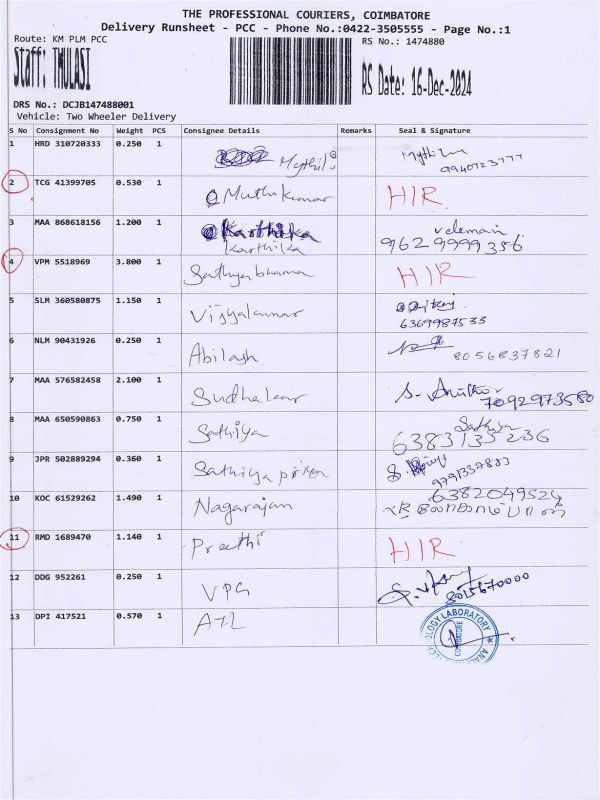 THE PROFESSIONAL COURIERS, COIMBATORE
Delivery Runsheet - PCC - Phone No.:0422-3505555 - Page No.:1
Route: KM PLM PCC
RS No.: 1474880
Staff: THULASI
RS Date: 16-Dec-2024
DRS No.: DCJB147488001
Vehicle: Two Wheeler Delivery
S No Consignment No Weight PCS Consignee Details Remarks Seal & Signature
1 HRD 310720333 0.250 1 Mythili Mythili
2 TCG 41399705 0.530 1 Muthukumar HIR
3 MAA 868618156 1.200 1 Karthika
Karthika 9629999356
4 VPM 5518969 3.800 1 Sathyabhama HIR
5 SLM 360580875 1.150 1 Vijyakumar
6369987533
6 NLM 90431926 0.250 1 Abilash 8056837821
7 MAA 576582458 2.100 1 Sudhakar 7092973580
8 MAA 650590863 0.750 1 Sathiya Sathiya
6383133236
9 JPR 502889294 0.360 1 Sathiya priya
9791337883
10 KOC 61529262 1.490 1 Nagarajan 6382049524
11 RMD 1689470 1.140 1 Preethi HIR
12 DDG 952261 0.250 1 VPG
13 DPI 417521 0.570 1 ATL
LABORATORY
COIMBATORE